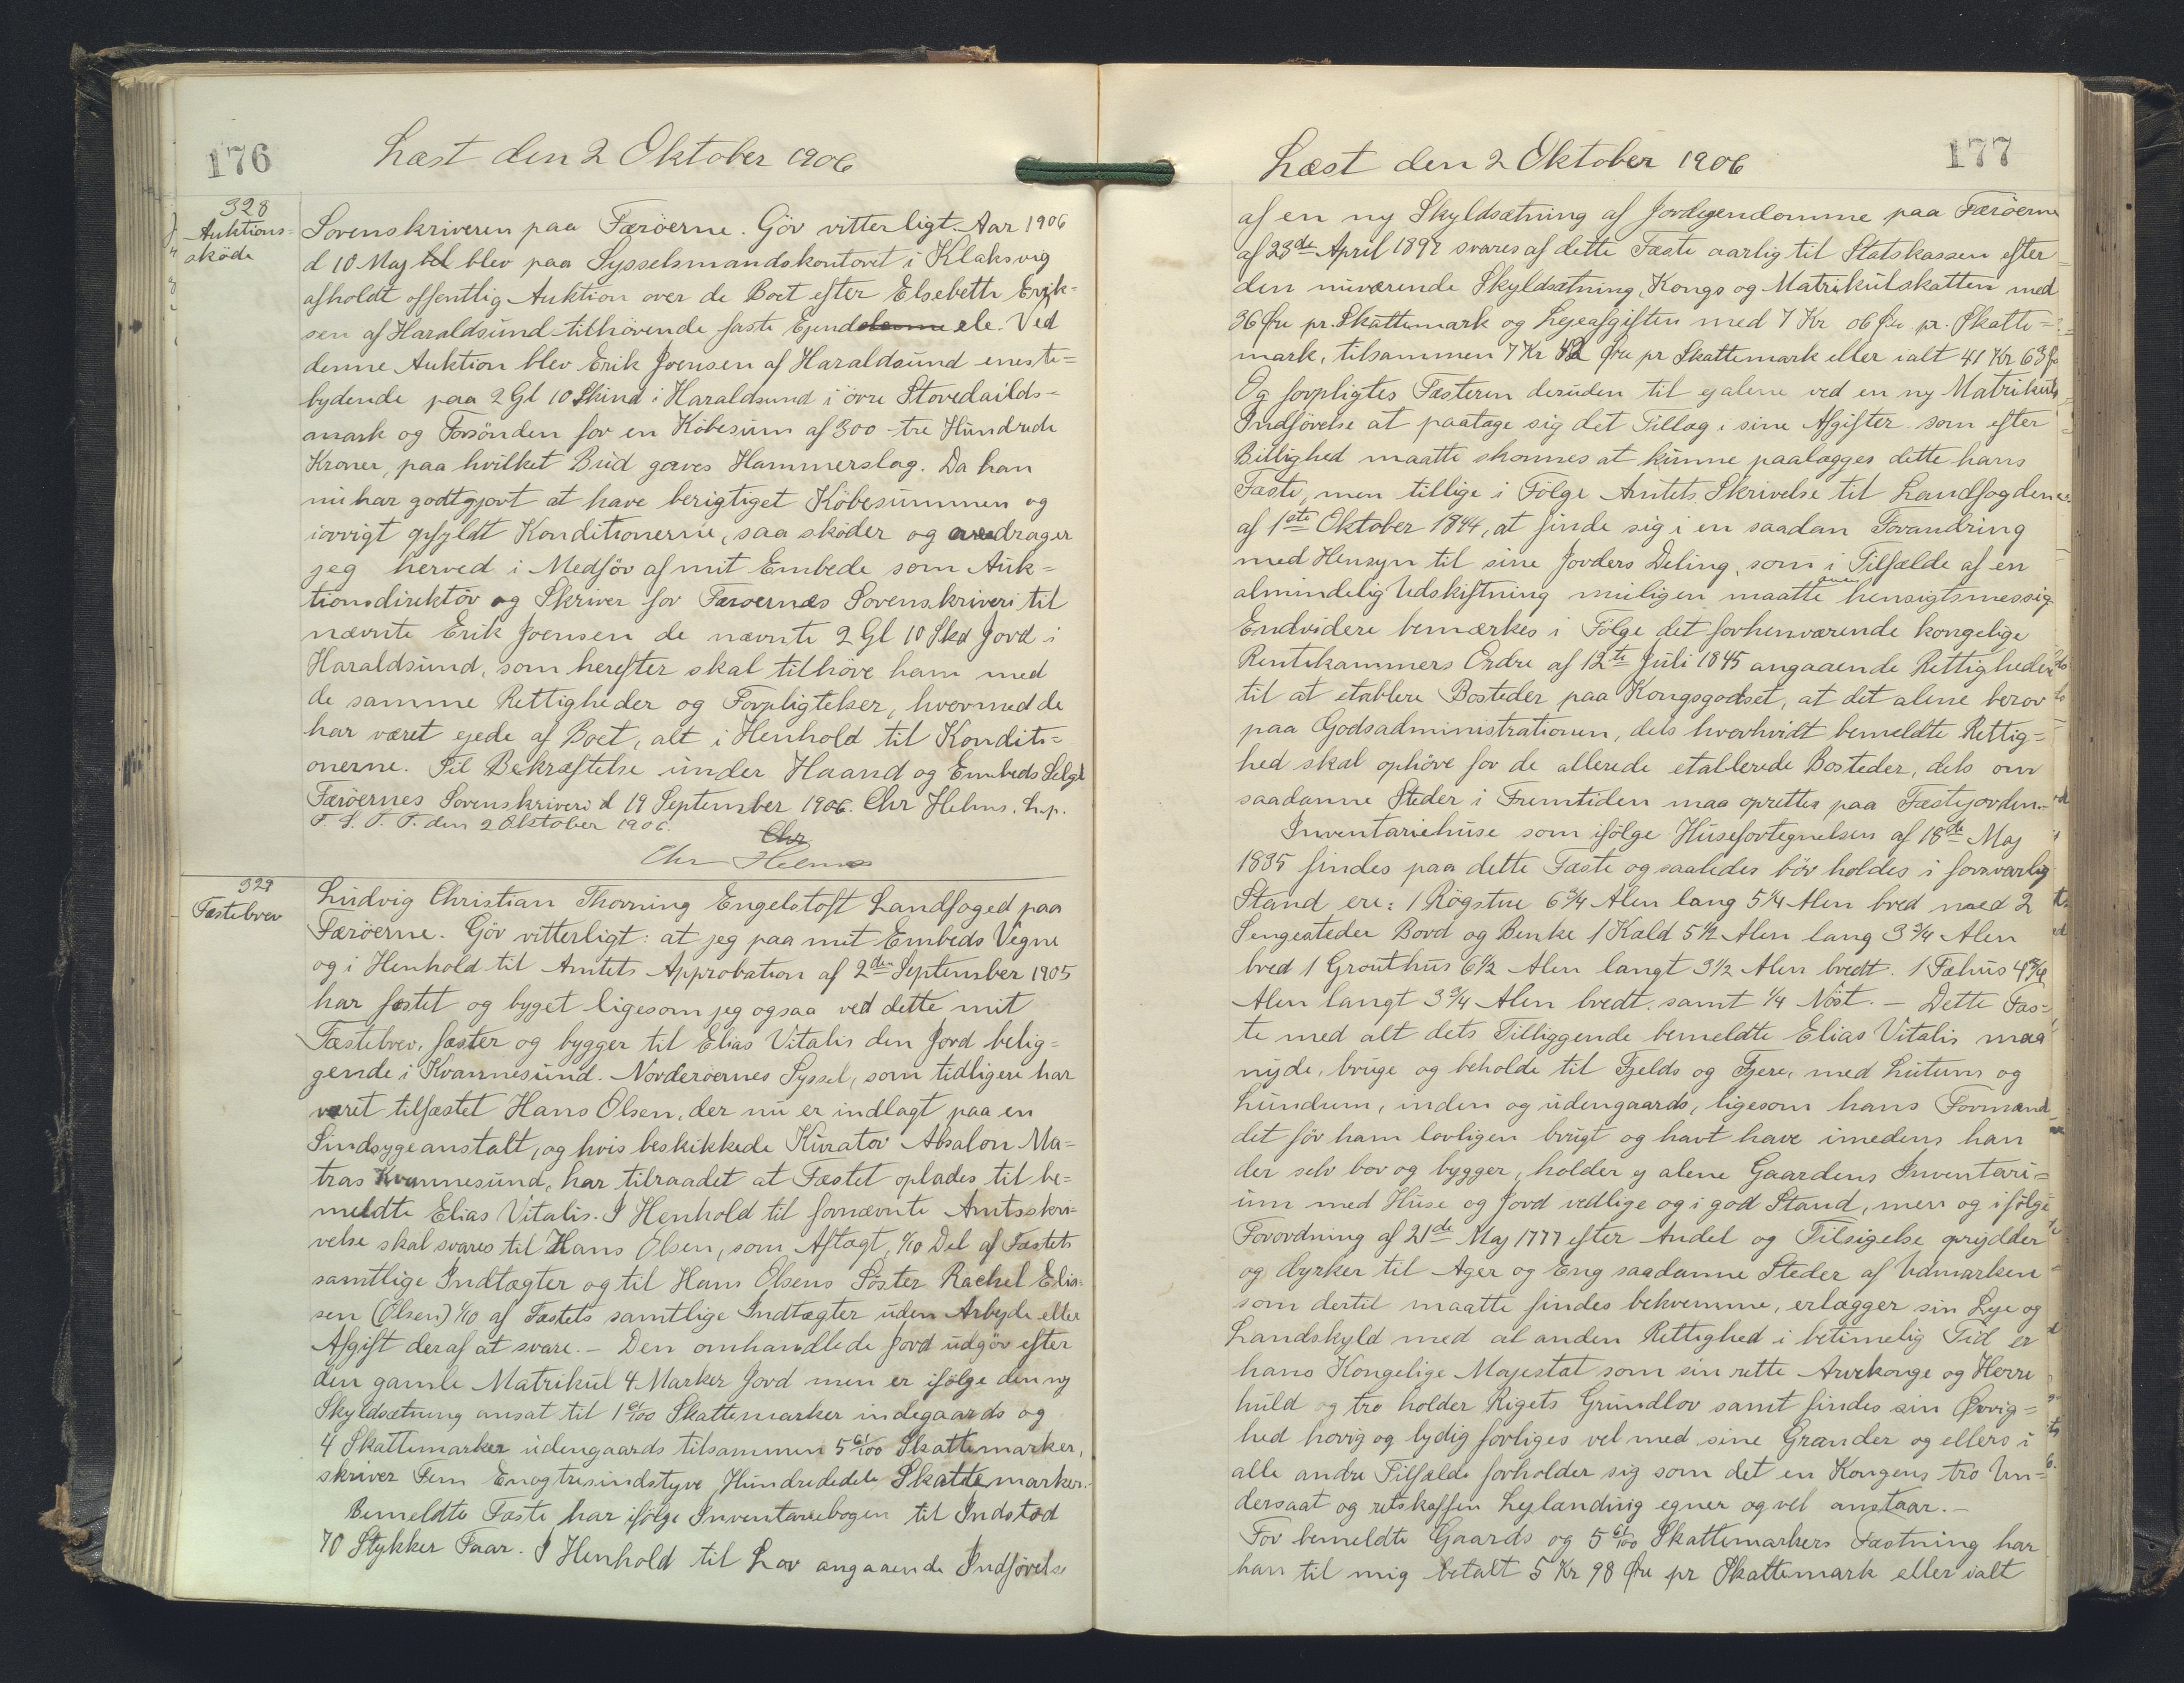 176
Læst den 2 Oktober 1906
328
Auktions=
sköde
Sorenskriveren paa Færöerne. Gör vitterligt. Aar 1906
d 10 Maj blev paa Sysselmandskontoret i Klaksvig
afholdt offentlig Auktion over de Boet efter Elsebeth Erik=
sen af Haraldsund tilhörende faste Ejendele. Ved
denne Auktion blev Erik Joensen af Haraldsund eneste=
bydende paa 2 Gl 10 Skind i Haraldsund i övre Stovedailds=
mark og Forsönden for en Köbesum af 300 - tre Hundrede
Kroner, paa hvilket Bud gaves Hammerslag. Da han
nu har godtgjort at have berigtiget Köbesummen og
iövrigt opfyldt Konditionerne, saa sköder og overdrager
jeg herved i Medför af mit Embede som Auk=
tionsdirektör og Skriver for Færöernes Sorenskriveri til
nævnte Erik Joensen de nævnte 2 Gl 10 Skd Jord i
Haraldsund, som herefter skal tilhöre ham med
de samme Rettigheder og Forpligtelser, hvormed de
har været ejede af Boet, alt i Henhold til Kondit=
onerne. Til Bekræftelse under Haand og Embeds Segl
Færöernes Sorenskriveri d 19 September 1906. Chr Helms. h.p.
T. L. P. P. den 2 Oktober 1906.
Chr
Chr Helms
329
Fæstebrev
Ludvig Christian Thorning Engelstoft Landfoged paa
Færöerne. Gör vitterligt: at jeg paa mit Embeds Vegne
og i Henhold til Amtets Approbation af 2den September 1905
har fæstet og byget ligesom jeg ogsaa ved dette mit
Fæstebrev, fæster og bygger til Elias Vitalis den Jord belig=
gende i Kvannesund. Norderöernes Syssel, som tidligere har
været tilfæstet Hans Olsen, der nu er indlagt paa en
Sindsygeanstalt, og hvis beskikkede Kurator Absalon Ma=
tras Kvannesund, har tilraadet at Fæstet oplades til be=
meldte Elias Vitalis. I Henhold til fornævnte Amtsskri=
velse skal svares til Hans Olsen, som Aftægt, 4/10 Del af Fæstets
samtlige Indtægter og til Hans Olsens Söster Rachel Elia=
sen (Olsen) 1/10 af Fæstets samtlige Indtægter uden Arbejde eller
Afgift deraf at svare. - Den omhandlede Jord udgör efter
den gamle Matrikul 4 Marker Jord men er ifölge den ny
Skyldsætning ansat til 1 61/100 Skattemarker indegaards og
4 Skattemarker udengaards tilsammen 5 61/100 Skattemarker,
skriver Fem Enogtresindstyve Hundrededele Skattemarker.
Bemeldte Fæste har ifölge Inventariebogen til Indstöd
70 Stykker Faar. I Henhold til Lov angaaende Indförelse
177
Læst den 2 Oktober 1906
af en ny Skyldsætning af Jordegendomme paa Færöerne
af 23de April 1897 svares af dette Fæste aarlig til Statskassen efter
den nuværende Skyldsætning, Kongs og Matrikulskatten med
36 Öre pr. Skattemark og Lejeafgiften med 7 Kr 06 Öre pr. Skatte=
mark, tilsammen 7 Kr 42 Öre pr Skattemark eller ialt 41 Kr 63 Ö
Og forpligtes Fæsteren desuden til ej alene ved en ny Matrikuls
Indförelse at paatage sig det Tillæg i sine Afgifter som efter
Billighed maatte skönnes at kunne paalægges dette hans
Fæste, men tillige i Fölge Amtets Skrivelse til Landfogden
af 1ste Oktober 1844, at finde sig i en saadan Forandring
med Hensyn til sine Jorders Deling, som i Tilfælde af en
almindelig Udskiftning muligen maatte hensigtsmessig
Endvidere bemærkes i Fölge det forhenværende kongelige
Rentekammers Ordre af 12te Juli 1845 angaaende Rettigheden
til at etablere Bosteder paa Kongsgodset, at det alene beror
paa Godsadministrationen, dels hvorhvidt bemeldte Rettig=
hed skal ophöre for de allerede etablerede Bosteder, dels om
saadanne Steder i Fremtiden maa oprettes paa Fæstejorden.-
Inventariehuse som ifölge Husefortegnelsen af 18de Maj
1835 findes paa dette Fæste og saaledes bör holdes i forsvarlig
Stand ere: 1 Rögstue 6 3/4 Alen lang 5 1/4 Alen bred med 2
Sengesteder Bord og Benke 1 Kæld 5 1/2 Alen lang 3 3/4 Alen
bred 1 Grouthus 6 1/2 Alen langt 3 1/2 Alen bredt. 1 Fæhus 4 3/4
Alen langt 3 3/4 Alen bredt. samt 1/4 Nöst. - Dette Fæs=
te med alt dets Tilliggende bemeldte Elias Vitalis maa
nyde, bruge og beholde til Fjelds og Fjere, med Lutum og
Lundum, inden og udengaards, ligesom hans Formænd
det för ham lovligen brugt og havt have imedens han
der selv bor og bygger, holder ej alene Gaardens Inventari=
um med Huse og Jord vedlige og i god Stand, men og ifölge
Forordning af 21de Maj 1777 efter Andel og Tilsigelse oprydder
og dyrker til Ager og Eng saadanne Steder af Udmarken
som dertil maatte findes bekvemme, erlægger sin Leje og
Landskyld med al anden Rettighed i betimelig Tid er
hans Kongelige Majestæt som sin rette Arvekonge og Herre
huld og tro holder Rigets Grundlov samt findes sin Övrig=
hed hörig og lydig forliges vel med sine Grander og ellers i
alle andre Tilfælde forholder sig som det en Kongens tro Un=
dersaat og retskaffen Lejlænding egner og vel anstaar.-
For bemeldte Gaards og 5 61/100 Skattemarkers Fæstning har
han til mig betalt 5 Kr 98 Öre pr Skattemark eller ialt